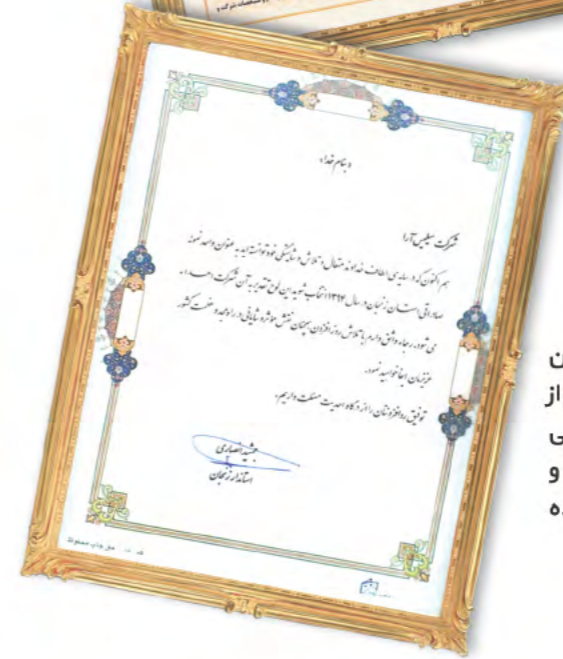 «بنام خدا»
شرکت سیلیس آرا
هم اکنون که در سایه‌ی الطاف خداوند متعال و تلاش و شایستگی خود توانسته‌اید به عنوان واحد نمونه
صادراتی استان زنجان در سال ۱۳۹۴ انتخاب شوید بدین لوح تقدیر به آن شرکت اهداء
می شود. رجاء واثق دارم با تلاش روزافزون همچنان نقش مؤثر و شایانی در راه مجد و عظمت کشور
عزیزمان ایفا خواهید نمود.
توفیق روزافزونتان را از درگاه احدیت مسئلت داریم.
جمشید انصاری
استاندار زنجان
حق چاپ محفوظ
ن
از
ی
و
ده